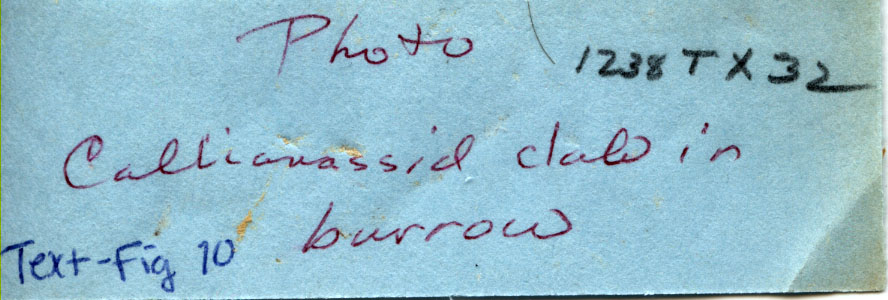 Photo
1238TX32
Callianassid claw in
burrow
Text-Fig 10